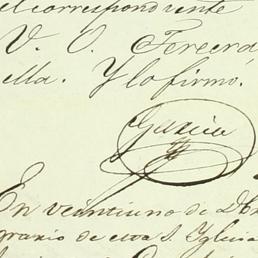 el correspondiente
V. O. Tercera
ella. Y lo firmó.
García
En veintiuno de Dbre
grario de esta S. Iglesia